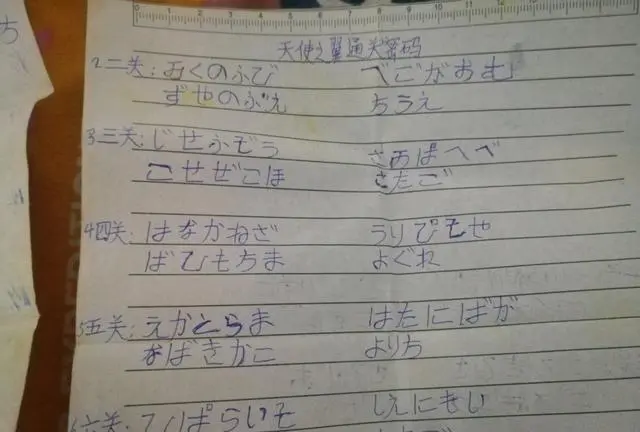 天使之翼通关密码
2二关: おくのふび べごがおむ
ずやのぶえ ちうえ
3三关: じせふぞう さあぱへべ
こせぜごほ さたご
4四关: はなかねざ うりぴもや
ばひもちま よぐれ
5五关: えかとらま はたにばが
なばきかこ よりち
六关: てんぱらいそ しえにもい